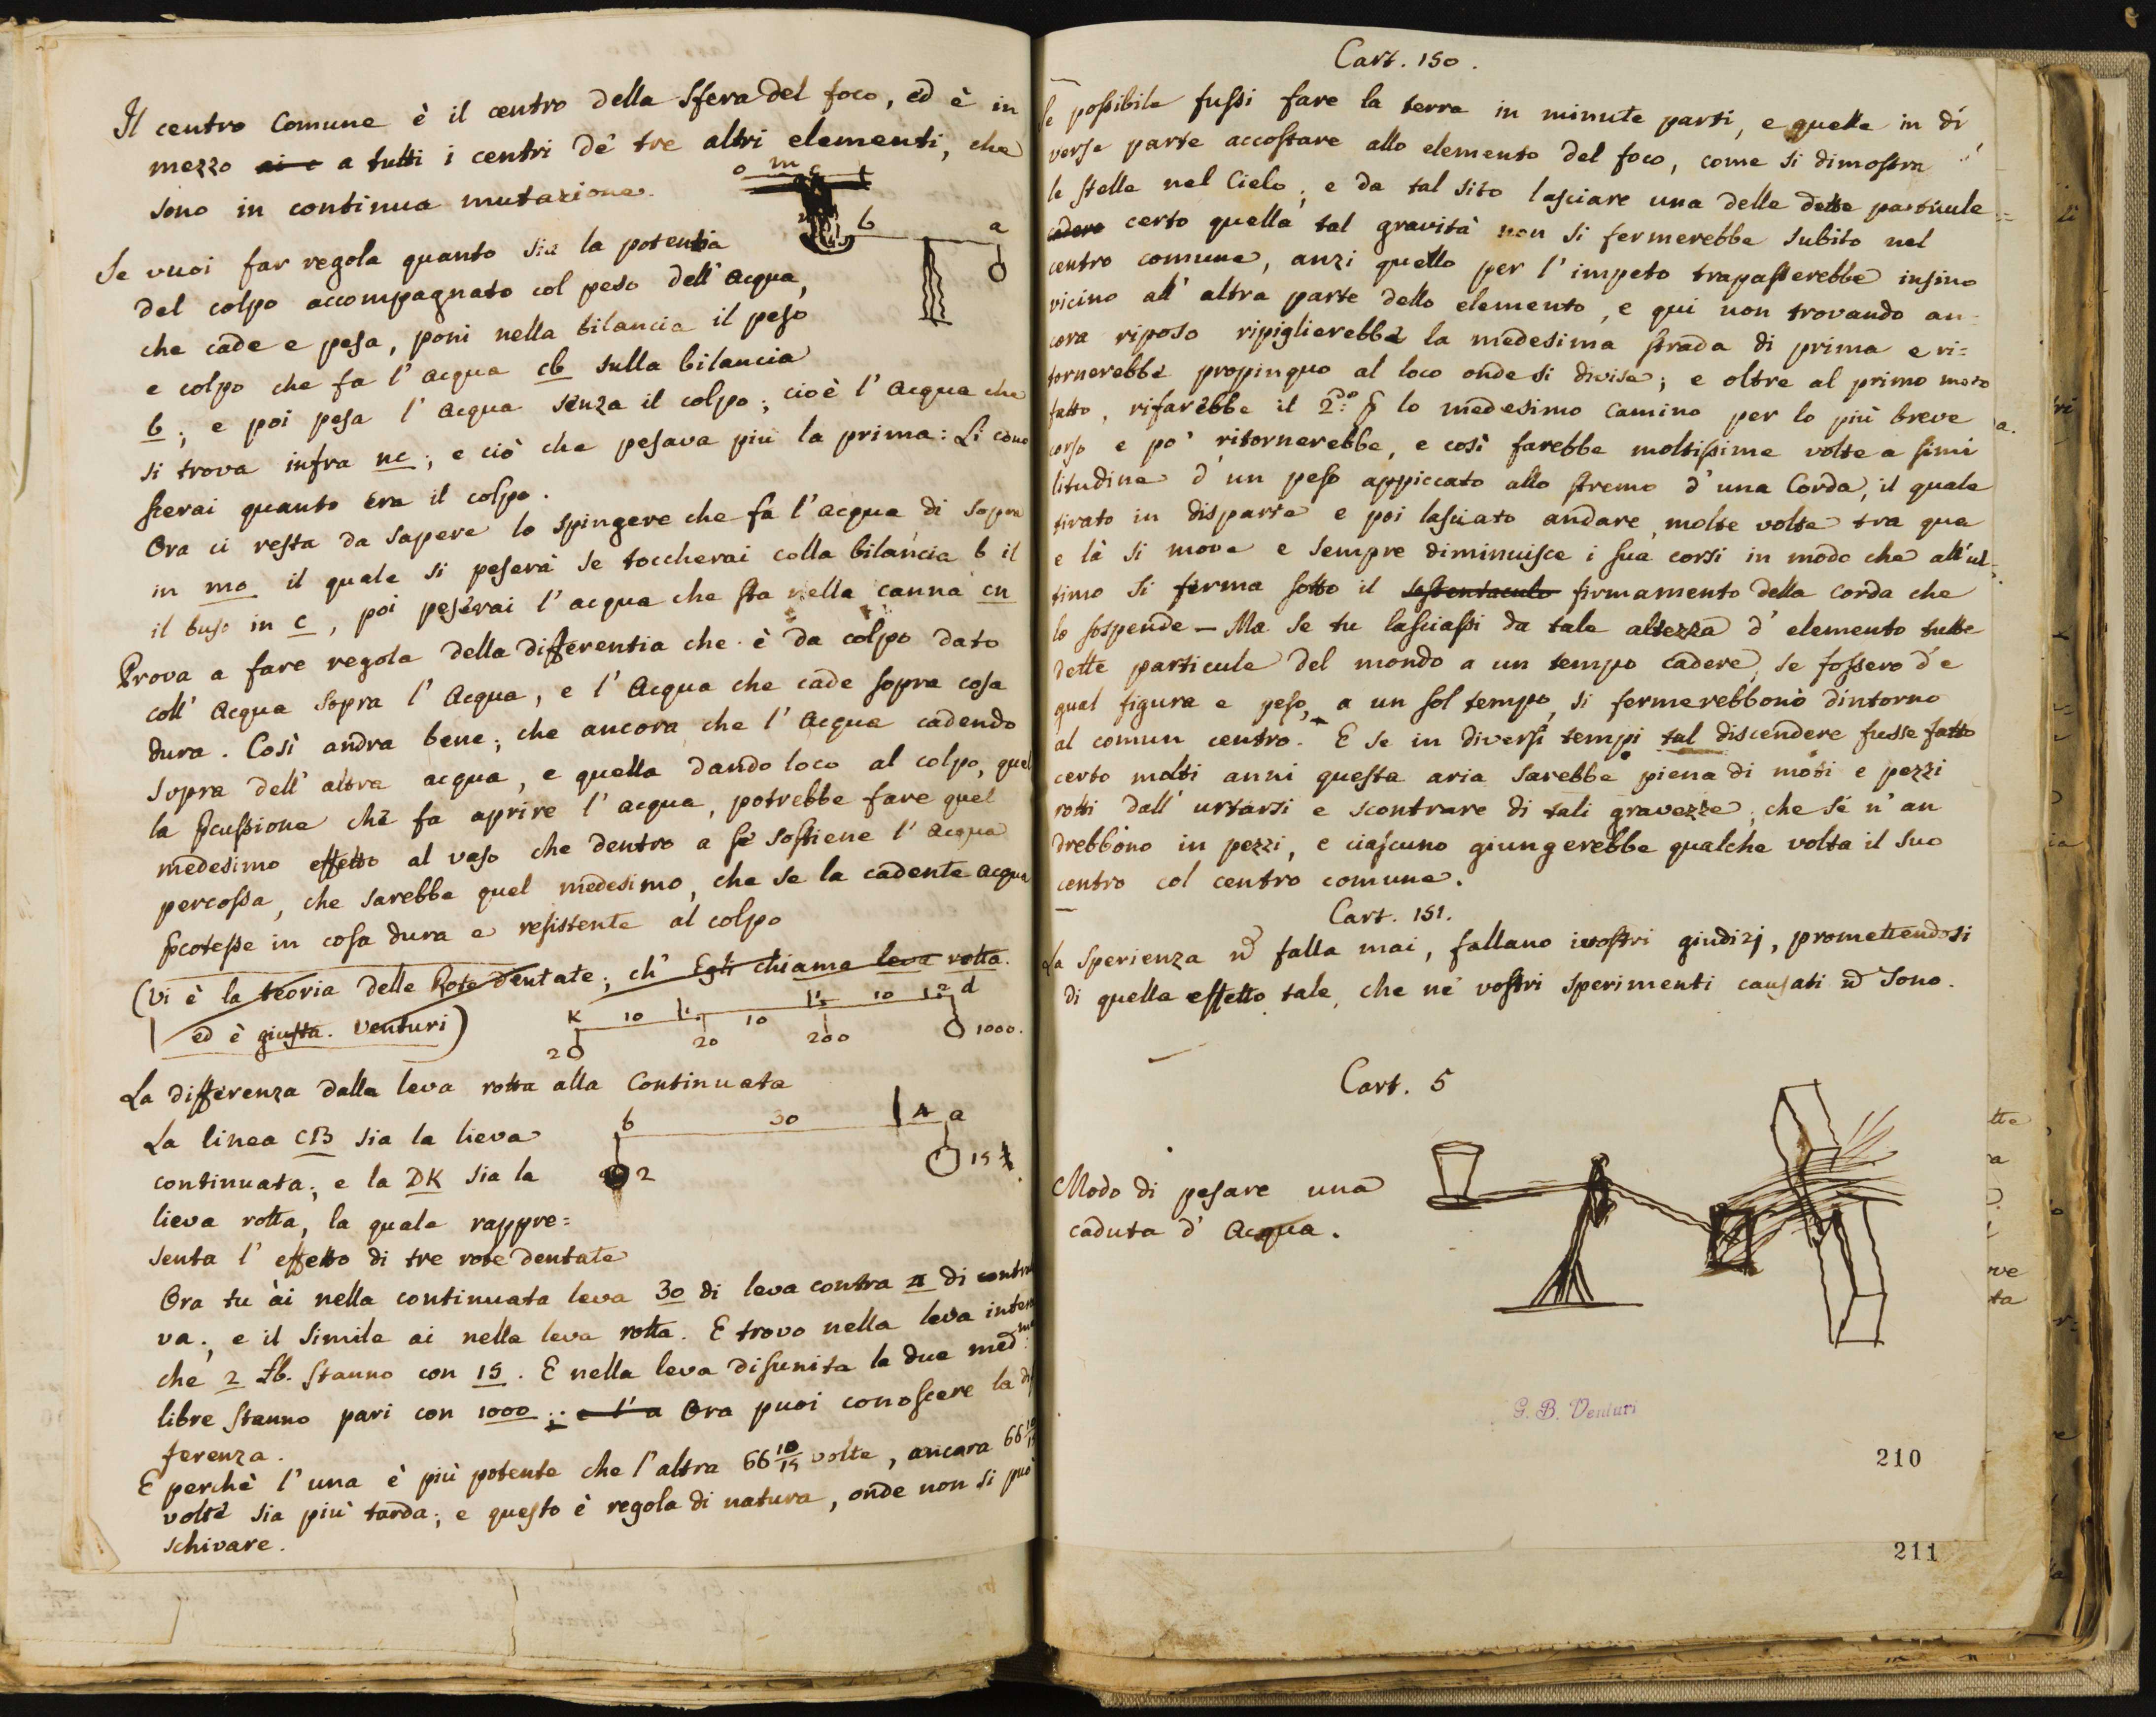 Il centro Comune è il centro della Sfera del foco, ed è in
mezzo ai c a tutti i centri de' tre altri elementi, che
sono in continua mutazione.
o m c t
n b a
Se vuoi far regola quanto sia la potentia
del colpo accompagnato col peso dell' acqua,
che cade e pesa, poni nella bilancia il peso
e colpo che fa l' acqua cb sulla bilancia
b; e poi pesa l' acqua senza il colpo; cioè l' acqua che
si trova infra nc; e ciò che pesava più la prima: Li cono
scerai quanto era il colpo.
Ora ci resta da sapere lo spingere che fa l' acqua di sopra
in mo il quale si peserà se toccherai colla bilancia b il
il buso in c, poi peserai l' acqua che sta nella canna cn
Prova a fare regola della differentia che è da colpo dato
coll' acqua sopra l' acqua, e l' acqua che cade sopra cosa
dura. Così andra bene; che ancora che l' acqua cadendo
sopra dell' altra acqua, e quella dando loco al colpo, quel
la pcussione che fa aprire l' acqua, potrebbe fare quel
medesimo effetto al vaso che dentro a se sostiene l' acqua
percossa, che sarebbe quel medesimo, che se la cadente acqua
pcotesse in cosa dura e resistente al colpo
(Vi è la teoria delle Rote dentate; ch' Egli chiama leva rotta.
ed è giusta. Venturi)
K 10 10 10 d
2 20 200 1000.
La differenza dalla leva rotta alla Continuata
b 30 4 a
2 15
La linea CB sia la lieva
continuata; e la DK sia la
lieva rotta, la quale rappre=
senta l' effetto di tre rote dentate
Ora tu ài nella continuata leva 30 di leva contra 4 di contra
va; e il simile ai nella leva rotta. E trovo nella leva intera
che 2 lb. stanno con 15. E nella leva disunita le due med.me
libre stanno pari con 1000; e l' a Ora puoi conoscere la dif
ferenza.
E perchè l' una è più potente che l' altra 66 10/15 volte, ancora 66 10/15
volte sia più tarda; e questo è regola di natura, onde non si può
schivare.
Cart. 150.
Se possibile fussi fare la terra in minute parti, e quelle in di
verse parte accostare allo elemento del foco, come si dimostra
le stelle nel Cielo; e da tal sito lasciare una delle dette particule
cadere certo quella tal gravità non si fermerebbe subito nel
centro comune, anzi quello per l' impeto trapasserebbe insino
vicino all' altra parte dello elemento, e qui non trovando an=
cora riposo ripiglierebbe la medesima strada di prima e ri=
tornerebbe propinquo al loco onde si divise; e oltre al primo moto
fatto, rifarebbe il 2do p lo medesimo camino per lo più breve
corso e po' ritornerebbe, e così farebbe moltissime volte a simi
litudine d' un peso appiccato allo stremo d' una Corda, il quale
tirato in disparte e poi lasciato andare, molte volte tra qua
e là si move e sempre diminuisce i sua corsi in modo che all' ul=
timo si ferma sotto il sostentaculo firmamento della corda che
lo sospende — Ma se tu lasciassi da tale altezza d' elemento tutte
dette particule del mondo a un tempo cadere, se fossero d' e
qual figura e peso, a un sol tempo, si fermerebbono dintorno
al comun centro. E se in diversi tempi tal discendere fusse fatto
certo molti anni questa aria sarebbe piena di moti e pezzi
rotti dall' urtarsi e scontrare di tali gravezze, che se n' an
drebbono in pezzi, e ciascuno giungerebbe qualche volta il suo
centro col centro comune.
Cart. 151.
La sperienza ñ falla mai, fallano i vostri giudizj, promettendosi
di quella effetto tale, che ne' vostri sperimenti causati ñ sono.
Cart. 5
Modo di pesare una
caduta d' acqua.
G. B. Venturi
210
211